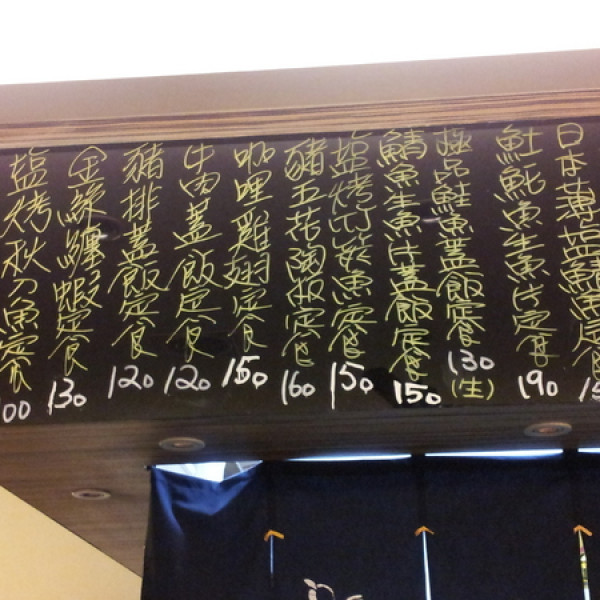 日本薄塩鯖魚定食
魠魠魚生魚片定食 190
極品鮭魚蓋飯定食 130
(生)
鯖魚生魚片蓋飯定食 150
塩烤竹筴魚定食 150
豬五花陶板定食 160
咖哩雞翅定食 150
牛肉蓋飯定食 120
豬排蓋飯定食 120
金絲纏蝦定食 130
塩烤秋刀魚定食 100